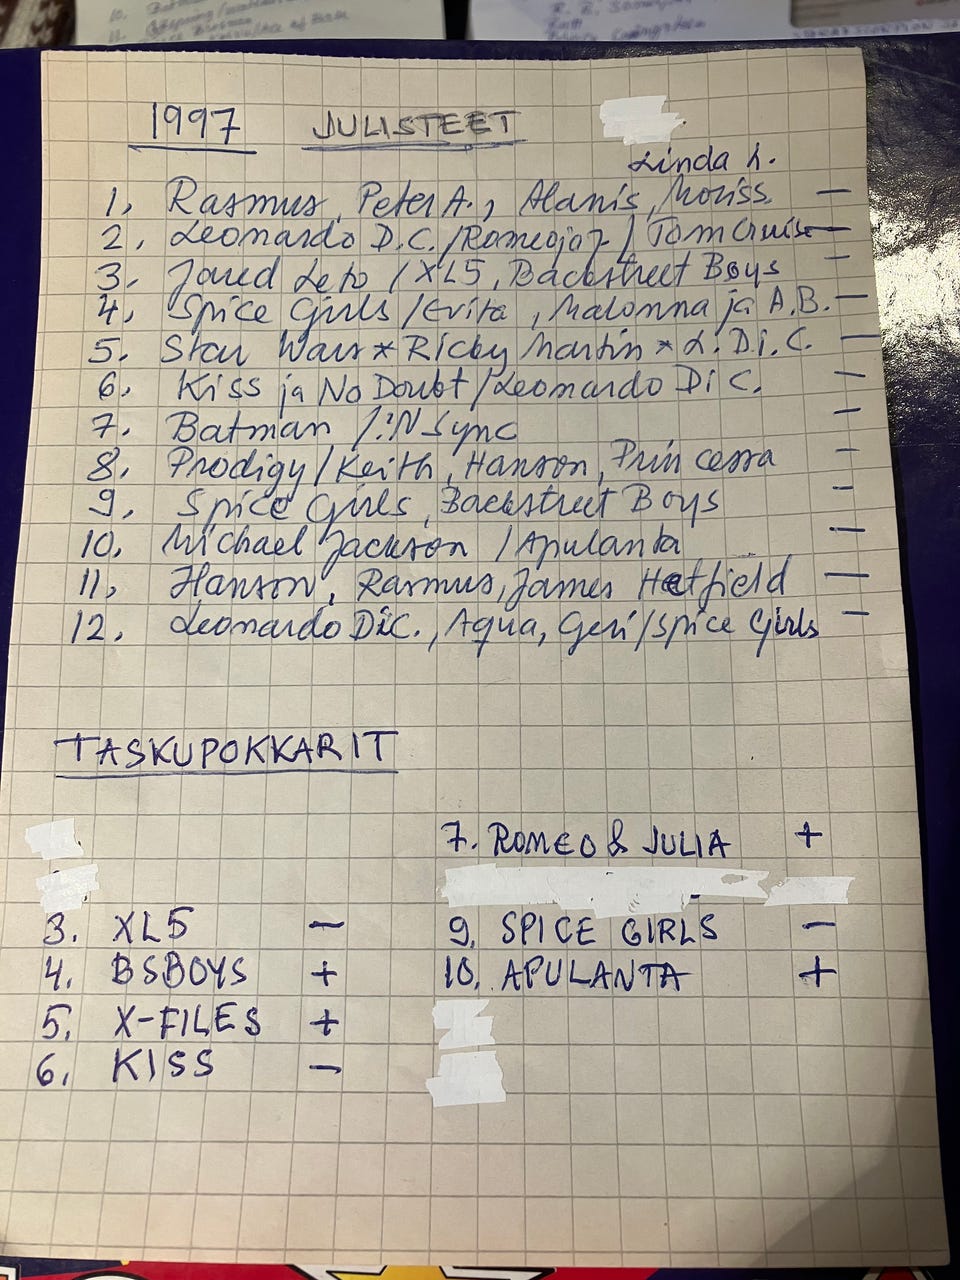 1997 JULISTEET
Linda L.
1, Rasmus, Peter A., Alanis, Moriss. –
2. Leonardo D.C. /Romeo ja J / Tom Cruise –
3. Jared Leto / XL5, Backstreet Boys –
4, Spice Girls /Evita, Madonna ja A.B. –
5. Star Wars * Ricky Martin * L. Di. C. –
6. Kiss ja No Doubt /Leonardo Di C. –
7. Batman /:'N Sync –
8, Prodigy /Keith, Hanson, Prin cessa –
9, Spice Girls, Backstreet Boys –
10, Michael Jackson /Apulanta –
11, Hanson, Rasmus, James Hetfield –
12, Leonardo DiC., Aqua, Geri/Spice Girls –
TASKUPOKKARIT
3. XL5 –
4. BSBOYS +
5. X-FILES +
6. KISS –
7. ROMEO & JULIA +
9, SPICE GIRLS –
10, APULANTA +